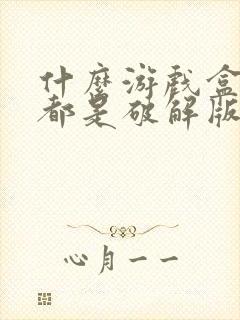 什麼游戏盒
都是破解版
心月一一